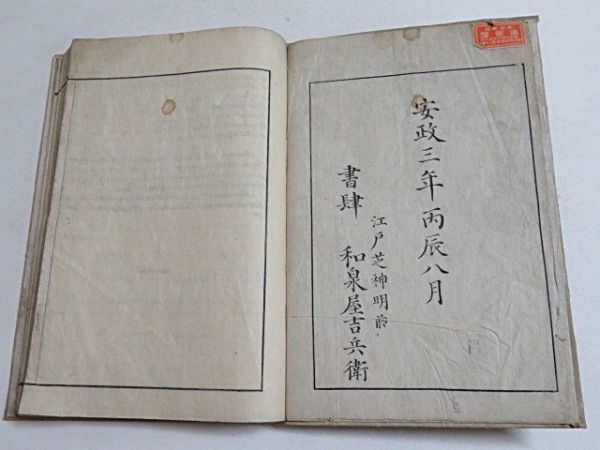 安政三年丙辰八月
江戸芝神明前
書肆 和泉屋吉兵衛